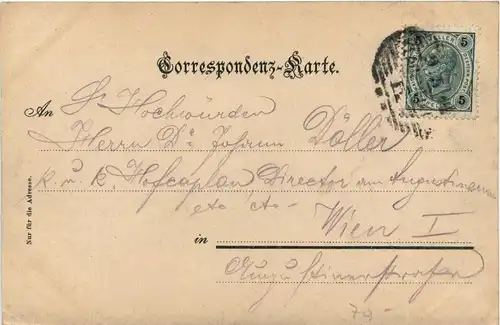 Correspondenz-Karte.
An
Sr Hochwürden
Herrn Dr Johann Döller
k. u. k. Hofcaplan Director am Augustineum
etc etc-
Wien I
in
Augustinerstrasse
Nur für die Adresse.
5 5
79-